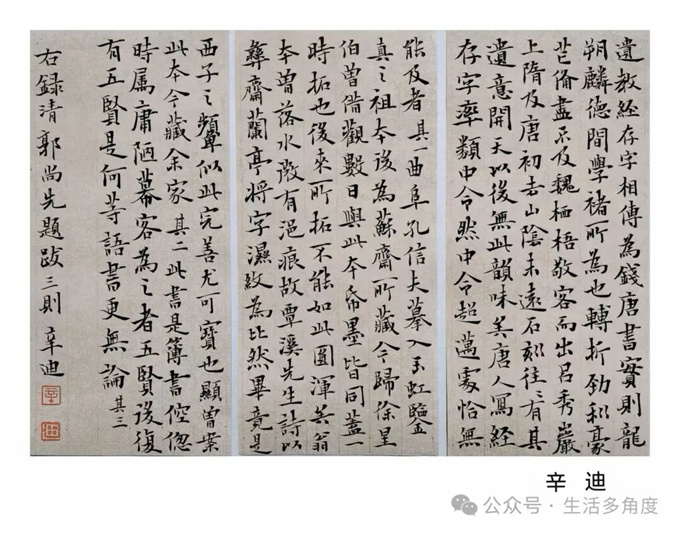 遺教經存字相傳為錢唐書實則龍
朔麟德間學褚所為也轉折勁和豪
芒備盡不及魏栖梧敬客而出呂秀巖
上隋及唐初去山陰未遠石刻往往有其
遺意開天以後無此韻味矣唐人寫經
存字率類中令然中令超邁處恰無
能及者其一曲阜孔信夫摹入玉虹鑒
真之祖本後為蘇齋所藏今歸徐星
伯曾借觀數日與此本帋墨皆同蓋一
時拓也後來所拓不能如此圓渾矣翁
本曾落水微有浥痕故覃溪先生詩以
彝齋蘭亭將字濕紋為比然畢竟是
西子之顰似此完善尤可寶也顯曾案
此本今藏余家其二此書是簿書倥傯
時属庸陋幕客為之者五賢後復
有五賢是何等語書更無論其三
右録清郭尚先題跋三則辛迪
辛迪
公众号·生活多角度